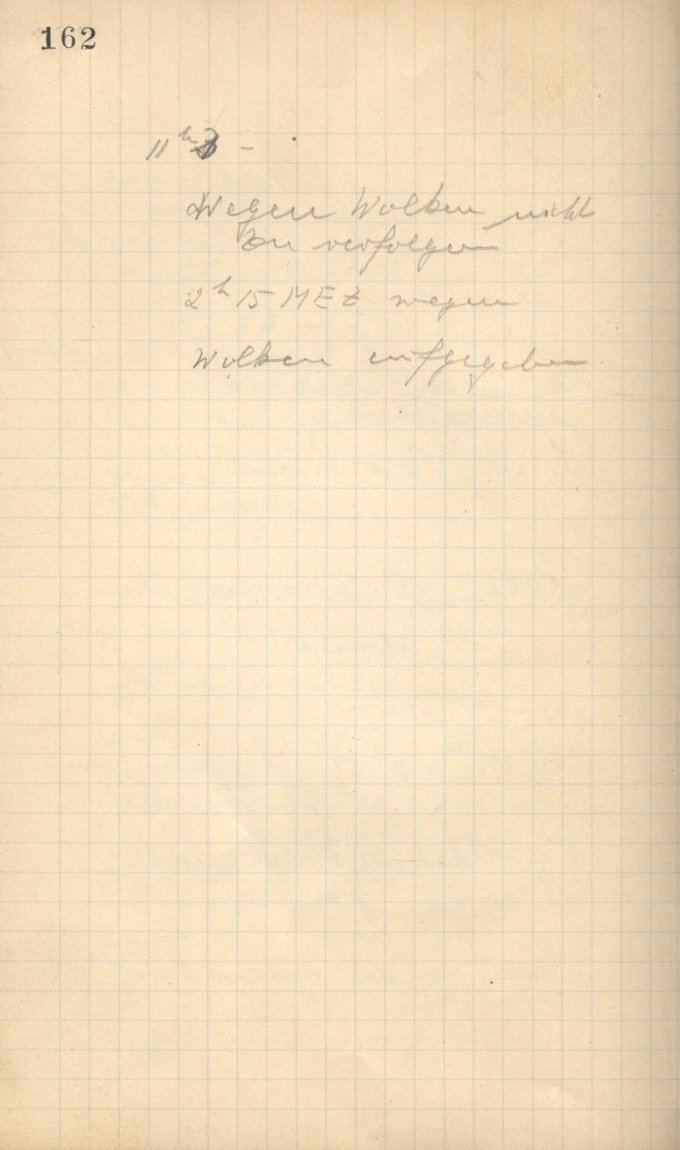 162
11h –
Wegen Wolken nicht
zu verfolgen
2h 15 MEZ wegen
Wolken aufgegeben